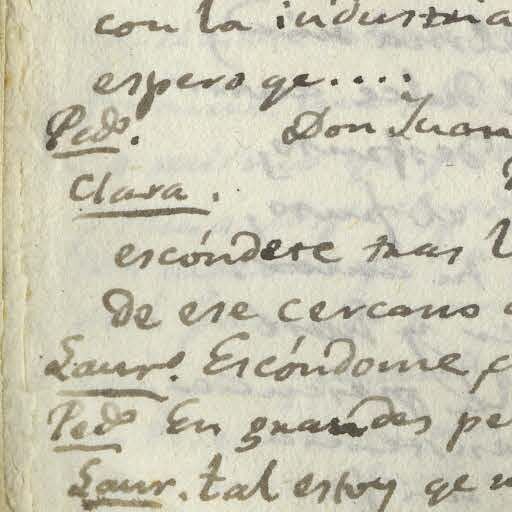 con la industria
espero qe....
Pedo. Don Juan
Clara.
escóndete tras
de ese cercano
Lauro. Escóndome
Pedo En grandes
Laur. tal estoy qe